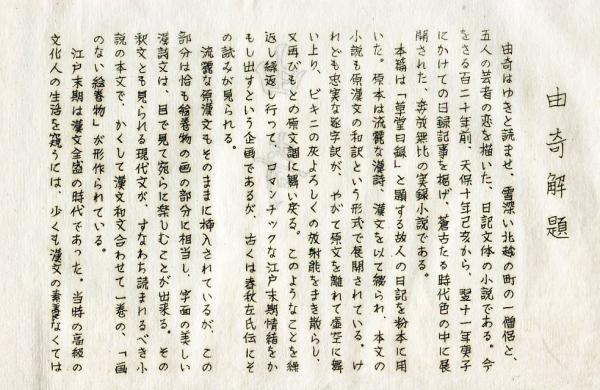 由奇解題
由奇はゆきと読ませ、雪深い北越の町の一僧侶と、
五人の芸者の恋を描いた、日記文体の小説である。今
をさる百二十年前、天保十年己亥から、翌十一年庚子
にかけての日録記事を掲げ、蒼古たる時代色の中に展
開された、奔放無比の実録小説である。
本篇は「草堂日録」と題する故人の日記を粉本に用
いた。原本は流麗な漢詩、漢文を以て綴られ、本文の
小説も原漢文の和訳という形式で展開されている。け
れども忠実な逐字訳が、やがて原文を離れて虚空に舞
い上り、ビキニの灰よろしくの放射能をまき散らし、
又再びもとの原文譜に舞い戻る。このようなことを繰
返し繰返し行って、ロマンチックな江戸末期情緒をか
もし出すという企画であるが、古くは春秋左氏伝にそ
の試みが見られる。
流麗な原漢文もそのままに挿入されているが、この
部分は恰も絵巻物の画の部分に相当し、字面の美しい
漢詩文は、目で見て宛らに楽しむことが出来る。その
釈文とも見られる現代文が、すなわち読まれるべき小
説の本文で、かくして漢文和文合わせて一巻の、「画
のない絵巻物」が形作られている。
江戸末期は漢文全盛の時代であった。当時の高級の
文化人の生活を窺うには、少くも漢文の素養なくては